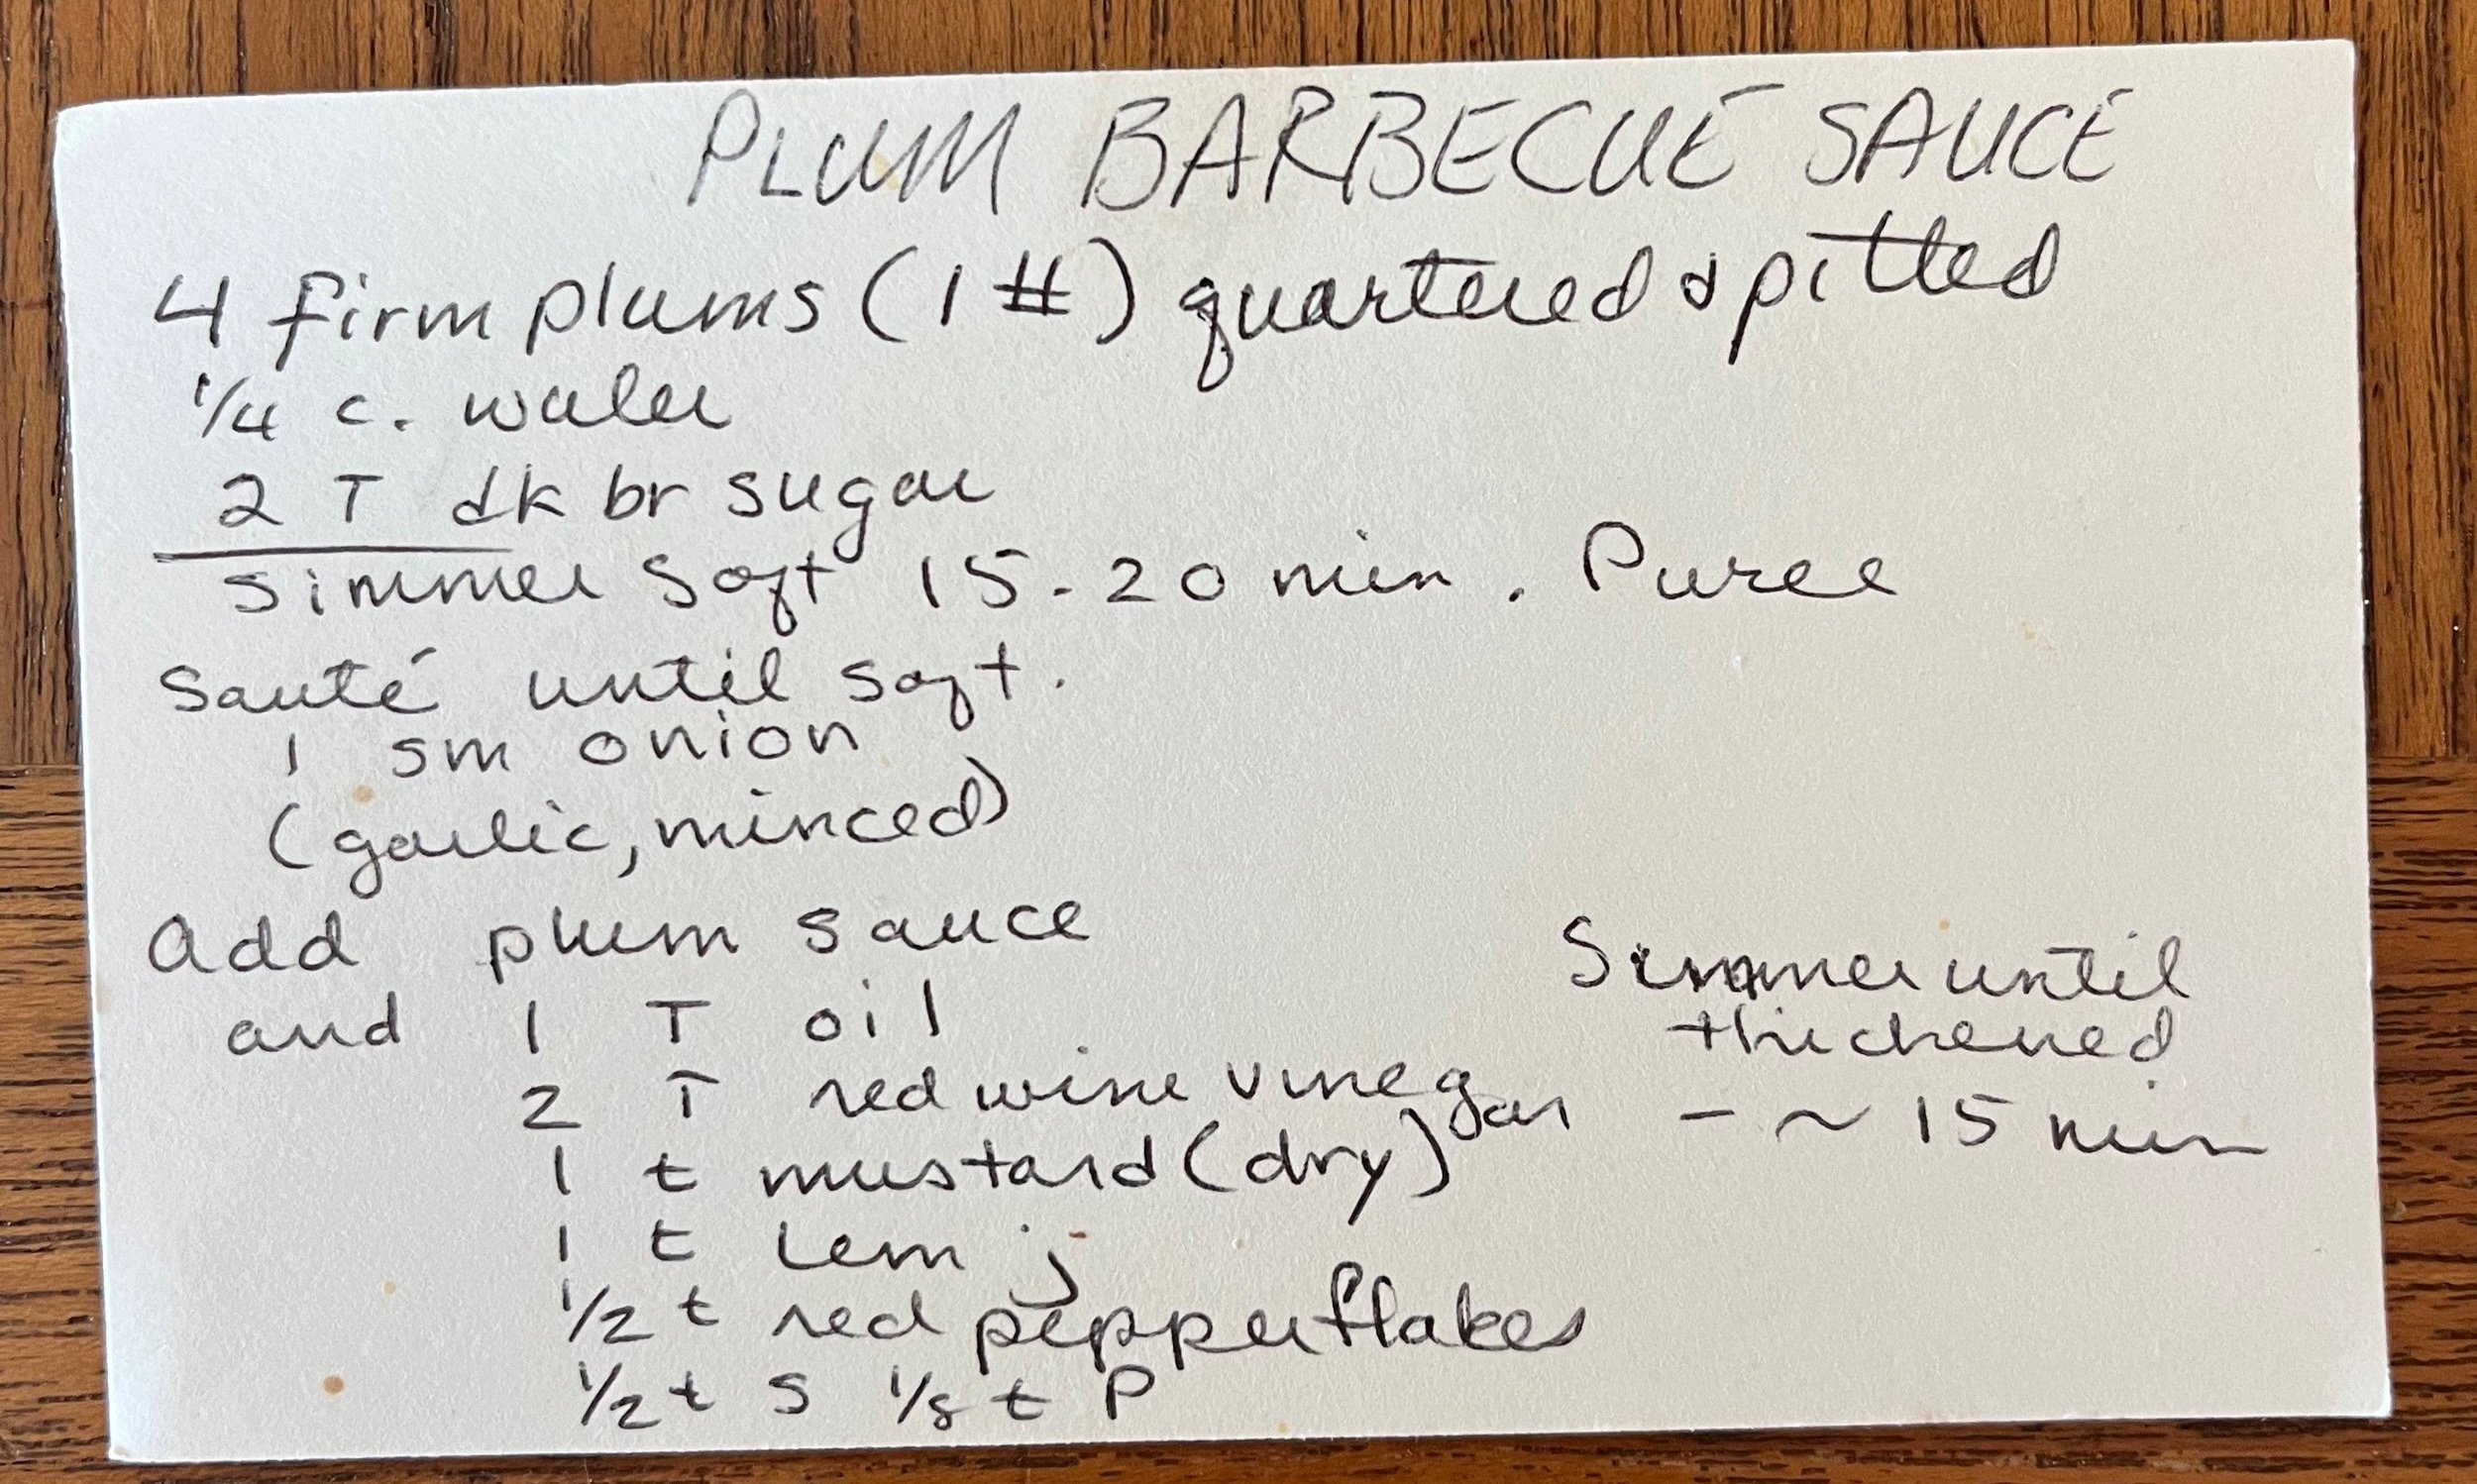 PLUM BARBECUE SAUCE
4 firm plums (1 #) quartered & pitted
1/4 c. water
2 T dk br sugar
simmer soft 15-20 min. Puree
Sauté until soft.
1 sm onion
(garlic, minced)
Add plum sauce
and 1 T oil
2 T red wine vinegar
1 t mustard (dry)
1 t lem j
1/2 t red pepper flakes
1/2 t S 1/8 t P
Simmer until
thickened
- ~ 15 min